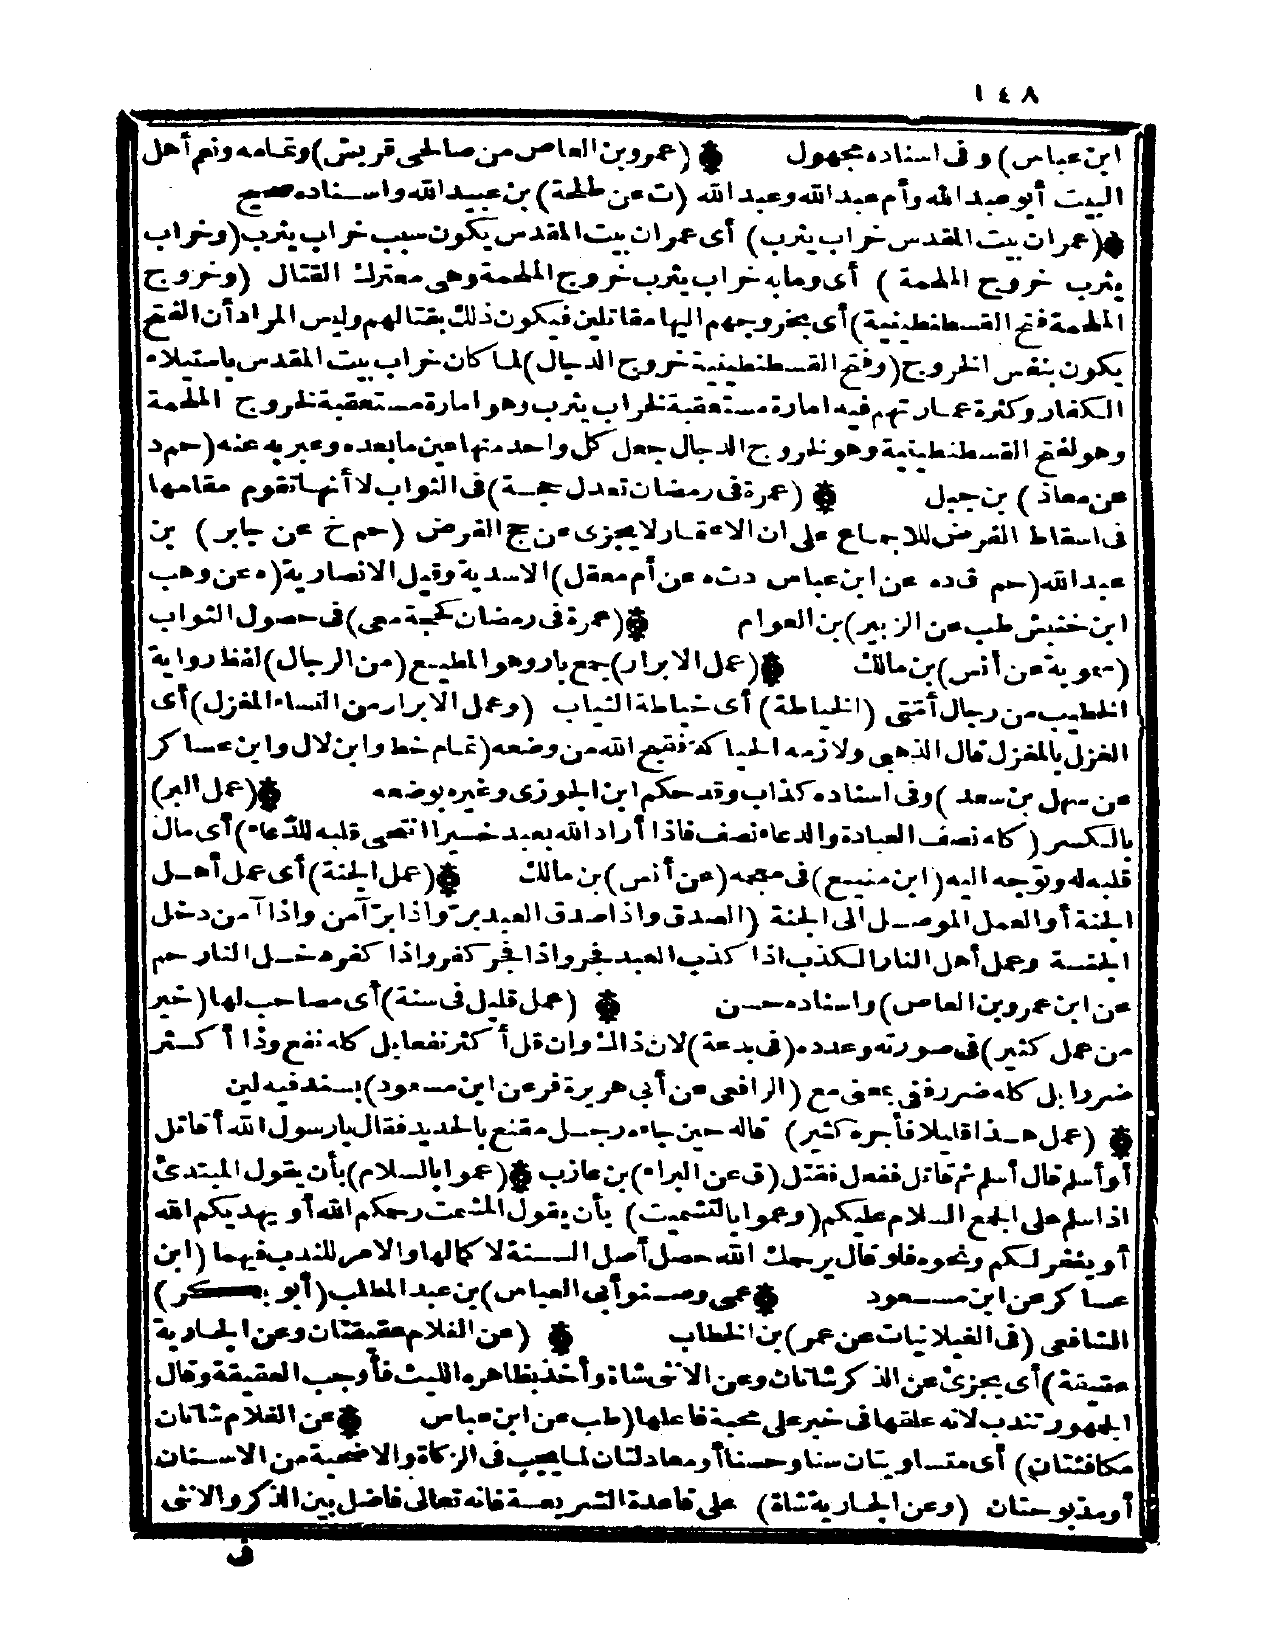 ١٤٨
ابن عباس) وفى اسناده مجهول ۞ (عمرو بن العاص من صالحى قريش) وتمامه ونعم أهل
البيت أبو عبد الله وأم عبد الله وعبد الله (ت عن طلحة) بن عبيد الله واسناده صحيح
۞(عمران بيت المقدس خراب يثرب) أى عمران بيت المقدس يكون سبب خراب يثرب (وخراب
يثرب خروج الملحمة) أى ومابه خراب يثرب خروج الملحمة وهى معترك القتال (وخروج
الملحمة فتح القسطنطينية) أى بخروجهم اليها مقاتلين فيكون ذلك بقتالهم وليس المراد أن الفتح
يكون بنفس الخروج (وفتح القسطنطينية خروج الدجال) لما كان خراب بيت المقدس باستيلاء
الكفار وكثرة عمارتهم فيه امارة مستعقبة لخراب يثرب وهو امارة مستعقبة لخروج الملحمة
وهو لفتح القسطنطينية وهو لخروج الدجال جعل كل واحد منها عين ما بعده وعبر به عنه (حم د
عن معاذ) بن جبل ۞ (عمرة فى رمضان تعدل حجة) فى الثواب لا أنها تقوم مقامها
فى اسقاط الفرض للاجماع على ان الاعتمار لا يجزى عن حج الفرض (حم خ عن جابر) بن
عبد الله (حم ق ده عن ابن عباس دت ه عن أم معقل) الاسدية وقيل الانصارية (ه عن وهب
ابن خنبش طب عن الزبير) بن العوام ۞(عمرة فى رمضان كحجة معى) فى حصول الثواب
(سمويه عن أنس) بن مالك ۞(عمل الابرار) جمع بار وهو المطيع (من الرجال) لفظ رواية
الخطيب من رجال أمتى (الخياطة) أى خياطة الثياب (وعمل الابرار من النساء المغزل) أى
الغزل بالمغزل قال الذهبى ولازمه الحياكة فقبح الله من وضعه (تمام خط وابن لال وابن عساكر
عن سهل بن سعد) وفى اسناده كذاب وقد حكم ابن الجوزى وغيره بوضعه ۞(عمل البر)
بالكسر (كله نصف العبادة والدعاء نصف فاذا أراد الله بعبد خيرا انتحى قلبه للدعاء) أى مال
قلبه له وتوجه اليه (ابن منيع) فى معجمه (عن أنس) بن مالك ۞(عمل الجنة) أى عمل أهل
الجنة أو العمل الموصل الى الجنة (الصدق واذا صدق العبد برّ واذا برّ آمن واذا آمن دخل
الجنة وعمل أهل النار الكذب اذا كذب العبد فجر واذا فجر كفر واذا كفر دخل النار حم
عن ابن عمرو بن العاص) واسناده حسن ۞ (عمل قليل فى سنة) أى مصاحب لها (خير
من عمل كثير) فى صورته وعدده (فى بدعة) لان ذاك وان قل أكثر نفعا بل كله نفع وذا أكثر
ضررا بل كله ضرر ففى بمعنى مع (الرافعى عن أبى هريرة فر عن ابن مسعود) بسند فيه لين
۞ (عمل هذا قليلا فأجره كثير) قاله حين جاءه رجل مقنع بالحديد فقال يا رسول الله أقاتل
أو أسلم قال أسلم ثم قاتل ففعل فقتل (ق عن البراء) بن عازب ۞(عموا بالسلام) بأن يقول المبتدئ
اذا سلم على الجمع السلام عليكم (وعموا بالتشميت) بأن يقول المشمت رحمكم الله أو يهديكم الله
أو يغفر لكم ونحوه فلو قال يرحمك الله حصل أصل السنة لا كمالها والامر للندب فيهما (ابن
عساكر عن ابن مسعود ۞عمى وصنو أبى العباس) بن عبد المطلب (أبو بكر)
الشافعى (فى الغيلانيات عن عمر) بن الخطاب ۞ (عن الغلام عقيقتان وعن الجارية
عقيقة) أى يجزئ عن الذكر شاتان وعن الانثى شاة وأخذ بظاهره الليث فأوجب العقيقة وقال
الجمهور تندب لانه علقها فى خبر على محبة فاعلها (طب عن ابن عباس ۞عن الغلام شاتان
مكافئتان) أى متساويتان سنا وحسنا أو معادلتان لما يجب فى الزكاة والاضحية من الاسنان
أو مذبوحتان (وعن الجارية شاة) على قاعدة الشريعة فانه تعالى فاضل بين الذكر والانثى
فى